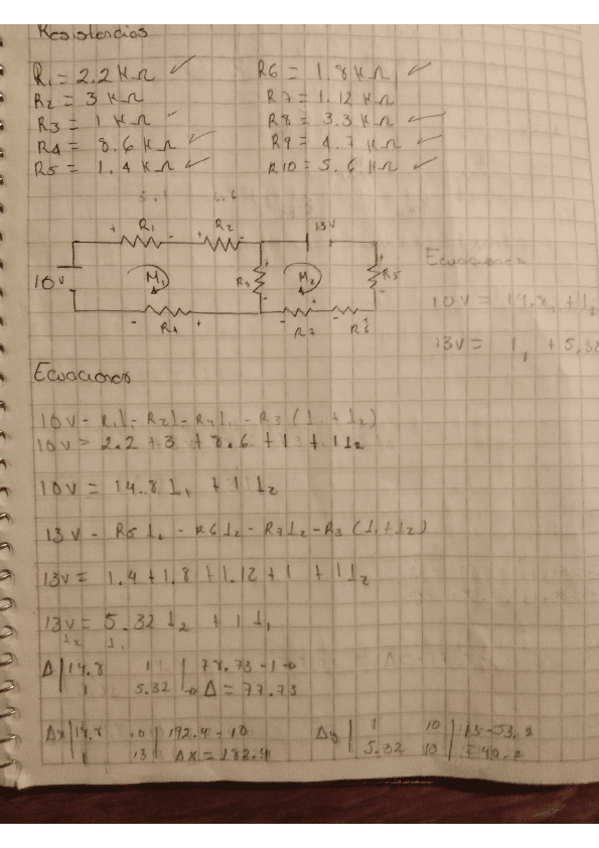 Resistencias
R1 = 2.2 KΩ ✓ R6 = 1.8 KΩ ✓
R2 = 3 KΩ R7 = 1.12 KΩ
R3 = 1 KΩ ✓ R8 = 3.3 KΩ ✓
R4 = 8.6 KΩ ✓ R9 = 4.7 KΩ ✓
R5 = 1.4 KΩ ✓ R10 = 5.6 KΩ ✓
+ R1 - + R2 - 13V
10V M1 R3 M2 R5
- R4 + R7 R6
Ecuaciones
10V = 14.8, + 1
13V = 1, + 5.32
Ecuaciones
10V - R1I1 - R2I1 - R4I1 - R3 (I1 + I2)
10V = 2.2 + 3 + 8.6 + 1 + 1I2
10V = 14.8 I1 + 1 I2
13V - R5 I2 - R6 I2 - R7 I2 - R3 (I1 + I2)
13V = 1.4 + 1.8 + 1.12 + 1 + 1 I2
13V = 5.32 I2 + 1 I1
I2 I1
Δ | 14.8 1 | 78.73 - 1
1 5.32 | Δ = 77.73
Δx | 14.8 10 | 192.4 - 10 Δy | 1 10 | 13 - 53.2
1 13 | Δx = 182.4 5.32 13 | = 40.2